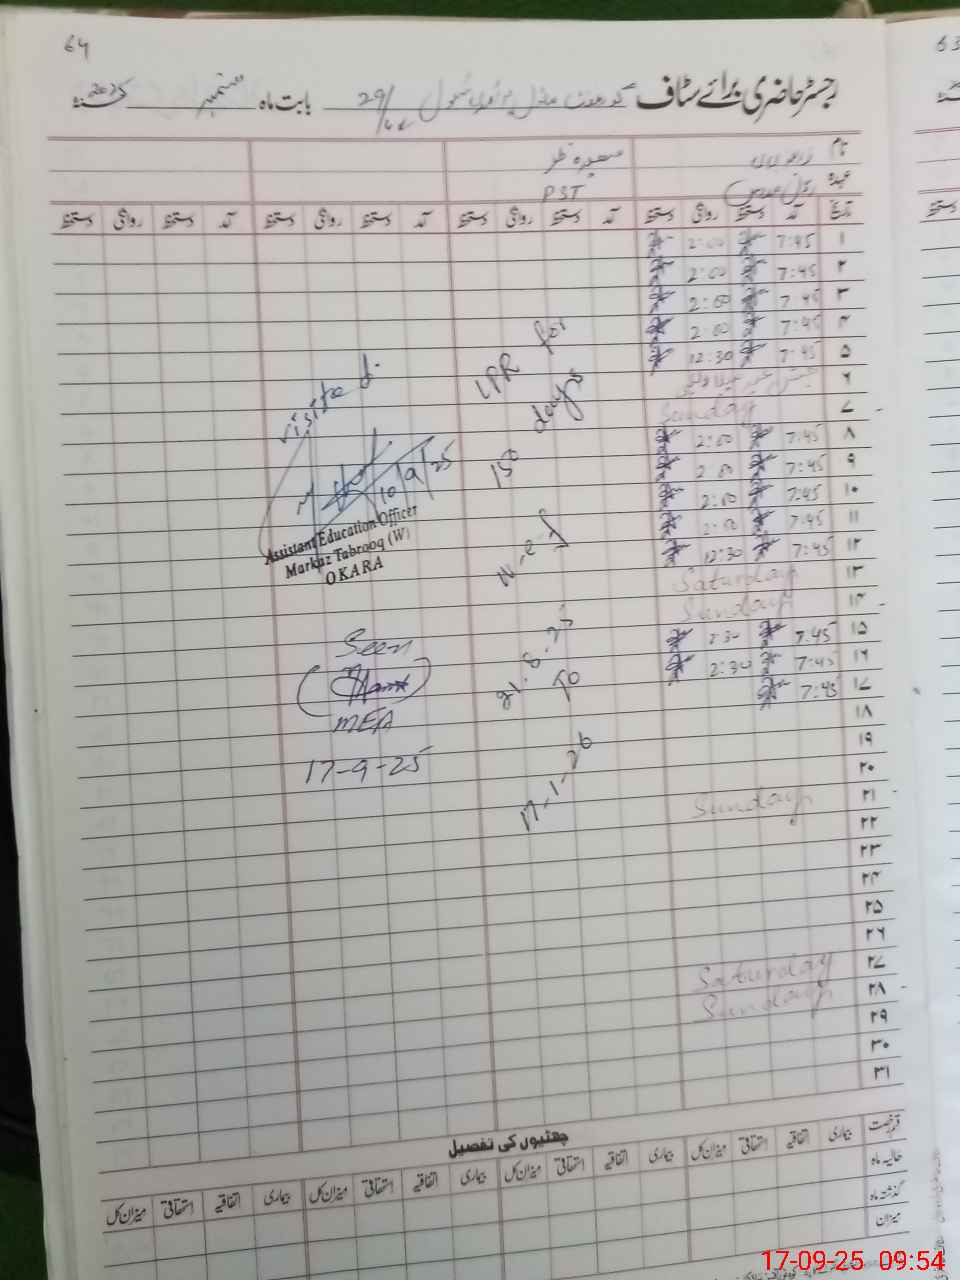 64
رجسٹر حاضری برائے سٹاف گورنمنٹ ماڈل پرائمری سکول 29/ بابت ماہ ستمبر 2025
نام
عہدہ PST
تاریخ آمد دستخط روانگی دستخط آمد دستخط روانگی دستخط آمد دستخط روانگی دستخط آمد دستخط روانگی دستخط
۱ 7:45 2:00
۲ 7:45 2:00
۳ 7:45 2:00
۴ 7:45 2:00
۵ 7:45 12:30
۶
۷ Sunday
۸ 7:45 2:00
۹ 7:45 2:00
۱۰ 7:45 2:00
۱۱ 7:45 2:00
۱۲ 7:45 12:30
۱۳ Saturday
۱۴ Sunday
۱۵ 7:45 2:30
۱۶ 7:45 2:30
۱۷ 7:45
۱۸
۱۹
۲۰
۲۱ Sunday
۲۲
۲۳
۲۴
۲۵
۲۶
۲۷ Saturday
۲۸ Sunday
۲۹
۳۰
۳۱
LPR for
150 days
w-e-f
21-8-25
to
17-1-26
visited
10/9/25
Assistant Education Officer
Markaz Tabrooq (W)
OKARA
Seen
MEA
17-9-25
چھٹیوں کی تفصیل
قسم رخصت بیماری اتفاقیہ استحقاقی میزان کل بیماری اتفاقیہ استحقاقی میزان کل بیماری اتفاقیہ استحقاقی میزان کل بیماری اتفاقیہ استحقاقی میزان کل
حالیہ ماہ
گذشتہ ماہ
میزان
63
17-09-25 09:54